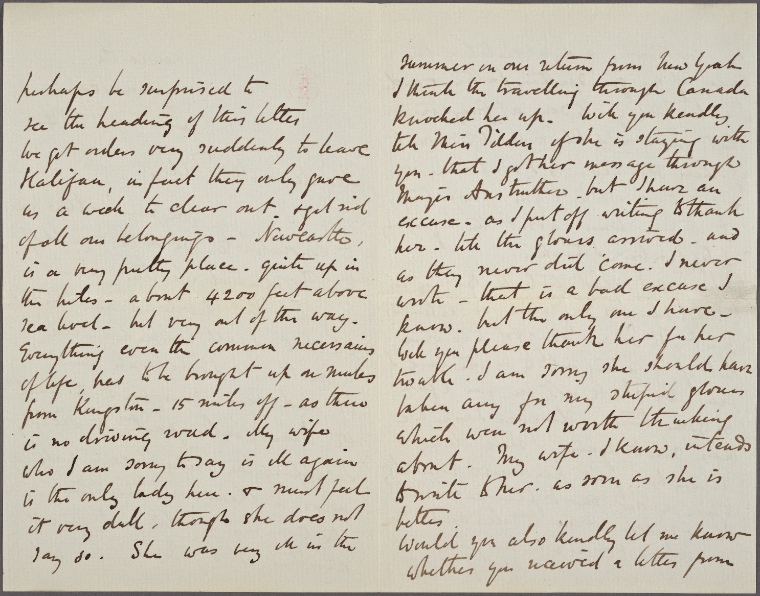 perhaps be surprised to
see the heading of this letter
We got orders very suddenly to leave
Halifax, in fact they only gave
us a week to clear out & get rid
of all our belongings – Newcastle,
is a very pretty place. quite up in
the hills – about 4200 feet above
sea level – but very out of the way.
Everything even the common necessaries
of life, has to be brought up on mules
from Kingston – 15 miles off – as there
is no driving road. My wife
who I am sorry to say is ill again
is the only lady here. & must feel
it very dull, though she does not
say so. She was very ill in the
summer on our return from New York
I think the travelling through Canada
knocked her up. Will you kindly
tell Miss Tilden, if she is staying with
you – that I got her message through
Major Anstruther. but I have an
excuse – as I put off writing to thank
her – till the gloves arrived – and
as they never did come. I never
wrote – that is a bad excuse I
know. but the only one I have –
Will you please thank her for her
trouble. I am sorry she should have
taken any for my stupid gloves
which were not worth thinking
about. My wife. I know, intends
to write to her. as soon as she is
better
Would you also kindly let me know
whether you received a letter from